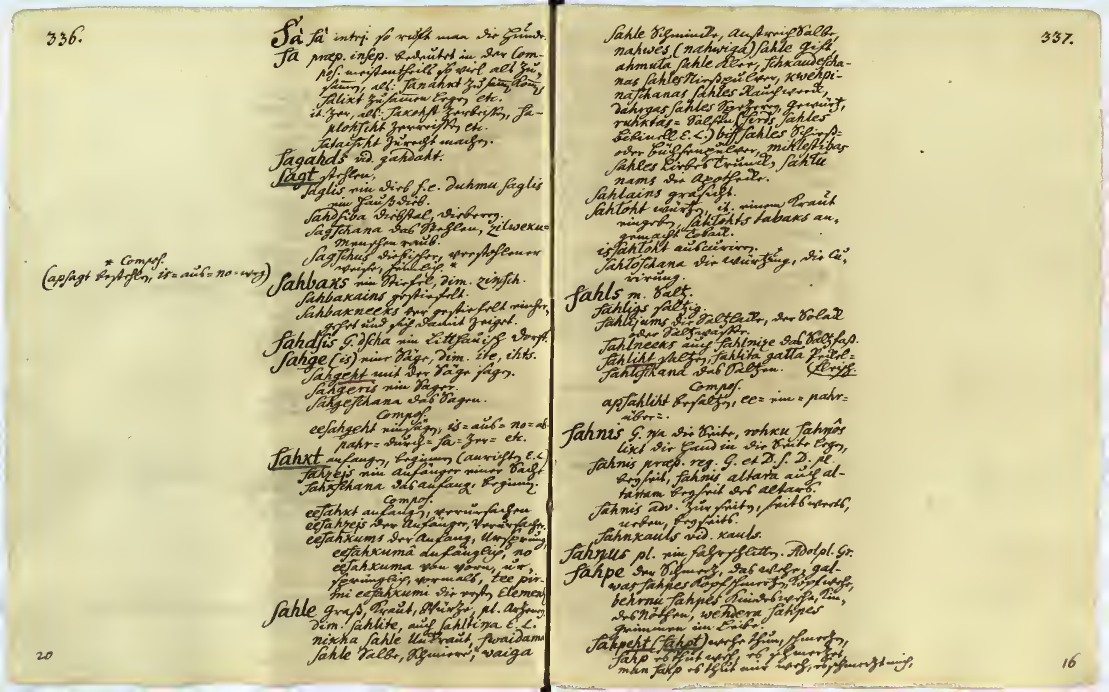 336.
Sà sà interj. so rufft man die Hunde.
sa præp. insep. bedeutet in der Com-
pos. meistentheils so viel als Zu-
sam̄en, als. sanahkt zusam̄en kom̄en
salixt Zusam̄en legen etc.
it. zer, als. sakohst zerbeissen, sa-
plohsiht zerreissen etc.
sataisiht zurecht machen.
sagahds vid. gahdaht.
sagt stehlen,
saglis ein dieb f.e. duhmu saglis
ein Hauß dieb.
sahdsiba diebstal, dieberey.
sagschana das Stehlen, zilweku-
Menschen raub.
sagschus diebischer, verstohlener
weise, heimlich. *
* Compos.
(apsagt bestehlen, is= aus= no= weg)
sahbaks ein Stiefel, dim. zinsch.
sahbakains gestiefelt.
sahbakneeks der gestiefelt einher
gehet und sich damit zeiget.
sahdsis G. dscha ein Litthauisch dorff.
sahge (is) eine Säge, dim. ite, ihts.
sahgeht mit der Säge sägen.
sahgeris ein Säger.
sahgeschana das Sägen.
Compos.
eesahgeht einsägen, is= aus= no= ab
pahr= durch= sa= zer= etc.
sahkt anfangen, beginnen (anrichten E.L.)
sahzejs ein Anfänger einer Sache
sahkschana das anfang, beginnen.
Compos.
eesahkt anfangen, verursachen
eesahzejs der Anfänger, Verursacher.
eesahkums der Anfang, Ursprung
eesahkumâ anfänglich, no
eesahkuma von vorn, ur-
sprünglich, vormals, tee pir-
mi eesahkumi die ersten Element
sahle graß, Kraut, Würtze, pl. Artzeney
dim. sahlite, auch sahltina E.L.
nikna sahle Unkraut, swaidama
sahle Salbe, Schmiere, waiga
20
337.
sahle Schminke, Anstreich Salbe,
nahwes (nahwiga) sahle Gift,
ahmuta sahle Klee, schkaudescha-
nas sahles Nießpulver, kwehpi-
naschanas sahles Rauchwerk,
dahrgas sahles Specerey, Gewürtz,
ruhktas= Salsen (sirds sahles
Bibinell E.L.) biss sahles Schieß-
oder büchsenpulver, mihlestibas
sahles Liebes Trunck, sahlu
nams die Apotheke.
sahlains grasicht.
sahloht würtzen, it. einem Kraut
eingeben, sahlohts tabaks an-
gemacht Toback.
issahloht auscuriren.
sahloschana die würtzung, die Cu-
rirung.
sahls m. Saltz.
sahligs saltzig.
sahlijums die Saltzlake, der Solak
oder Saltzwasser.
sahlneeks auch sahlnize das Saltzfaß.
sahliht saltzen, sahlita galla Pökel-
fleisch.
sahlischana das Saltzen.
Compos.
apsahliht besaltzen, ee= ein= pahr=
über=.
sahnis G. na die Seite, rohku sahnôs
likt die Hand in die Seite legen,
sahnis præp. reg. G. et D. s. D. pl
beyseit, sahnis altara auch al-
taram beyseit des altars.
sahnis adv. zur seiten, seitswerts,
neben, beyseits.
sahnkauls vid. kauls.
sahnus pl. ein fahrschlitten. Adolph. Gr.
sahpe der Schmertz, das wehe, gal-
was sahpes Kopfschmertz, Kopfwehe,
behrnu sahpes Kindeswehe, Kin-
des Nöthen, wehdera sahpes
grimmen im Leibe.
sahpeht (sahpt) wehe thun, schmertzen,
sahp es thut weh, es schmertzet,
man sahp es thut mir weh, es schmertzt mich,
16